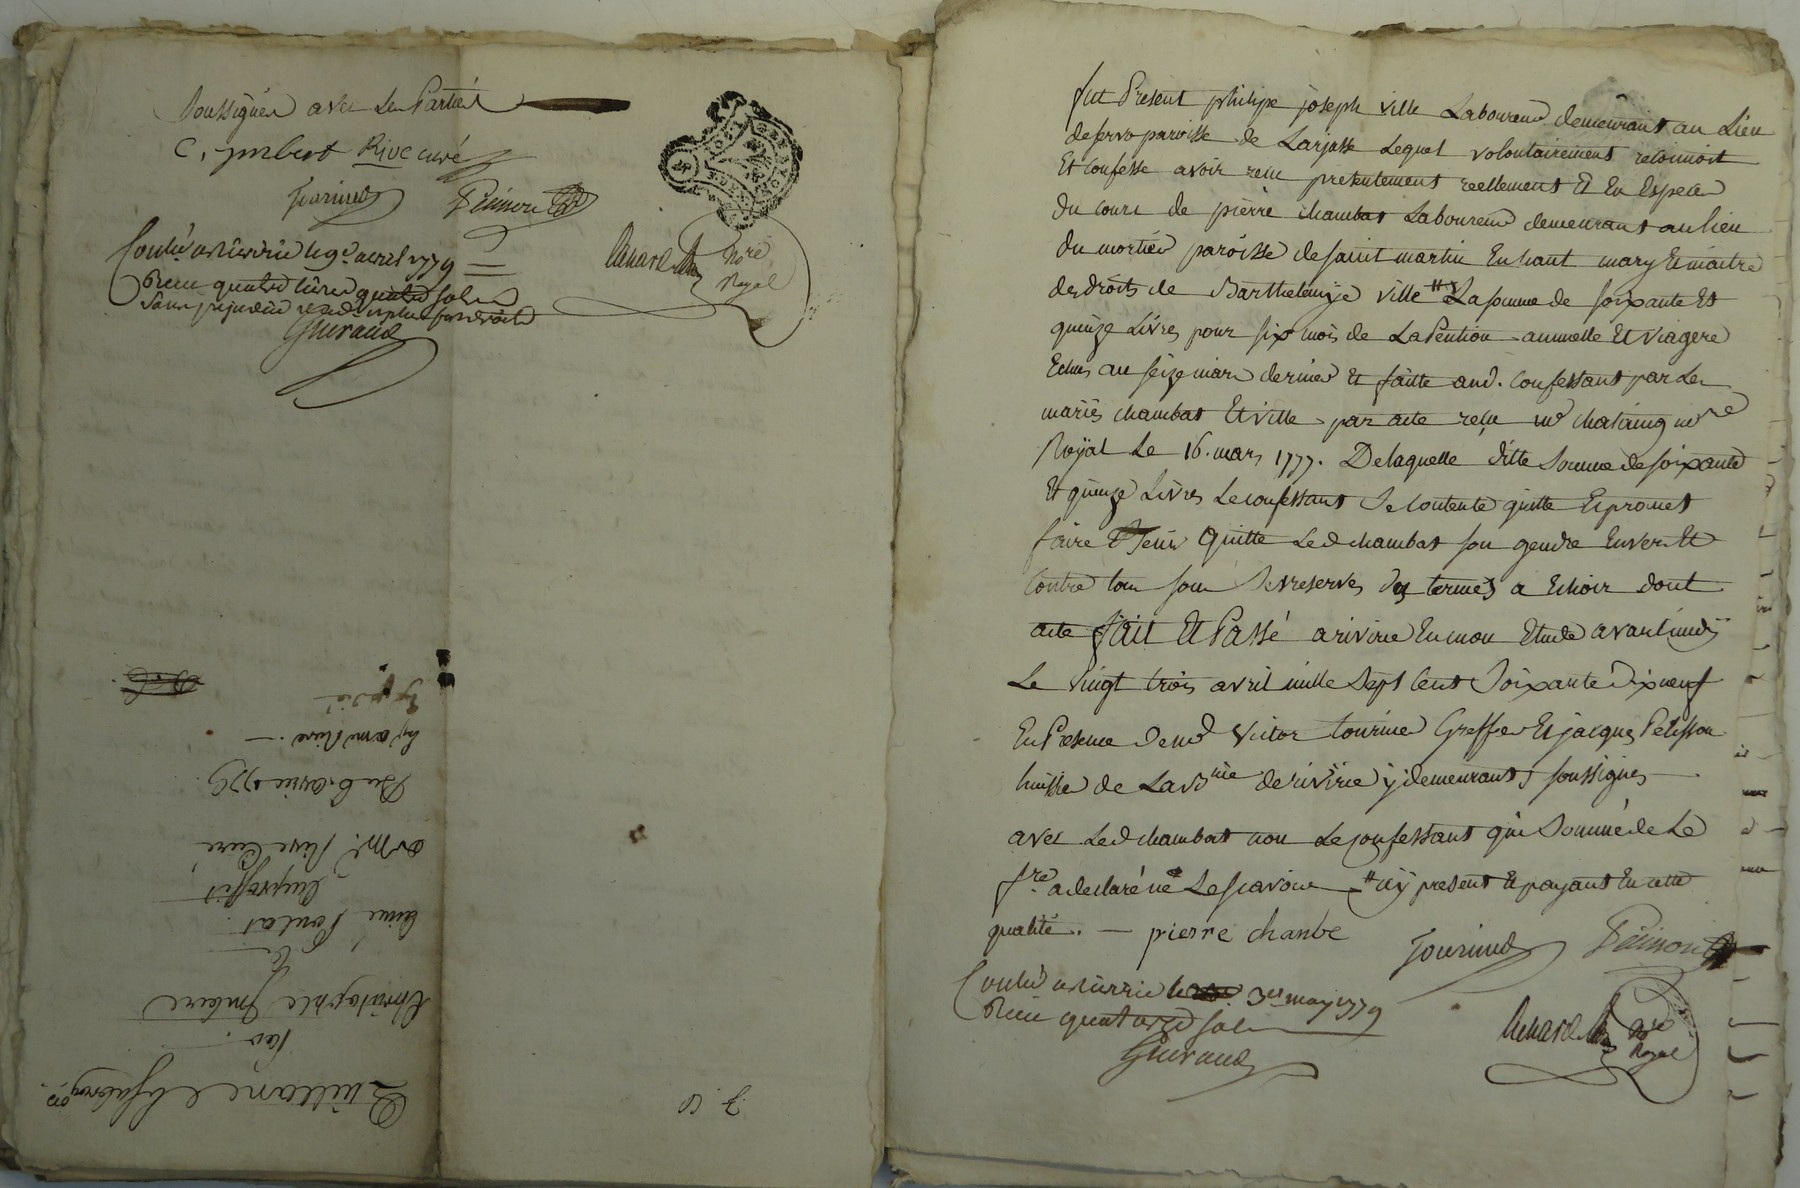 soussignés avec les Parties
C. jmbert Rive curé
Tourineur Pelisson
Conlé a Riverie le 9e avril 1779
Recu quatre livres quatre sols
sans prejudice
Guiraud
Renard
Nore
Royal
Quittance
Par
Christophle Imbert
Au proffit
De mr. Rive Curé
Du 6. avril 1779
fut Present philipe joseph ville Laboureur demeurant au Lieu
de servo paroisse de Larjasse Lequel volontairement reconnoit
Et Confesse avoir recu presentement reellement Et En Especes
Du cours de pierre chambas Laboureur demeurant au lieu
Du mortier paroisse de saint martin En haut mary Et maitre
des droits de Barthelemye ville # La somme de soixante Et
quinze Livres pour six mois de La Pention annuelle Et viagere
Echus au seize mars dernier Et faitte aud. Confessant par Les
mariés chambas Et ville par acte recu me chataing nore
Royal Le 16. mars 1777. De laquelle ditte somme de soixante
Et quinze Livres Le confessant se contente quitte Et promet
faire Tenir Quitte Led chambas son gendre Envers Et
Contre tous sous Les reserves des termes a Echoir dont
acte fait Et Passé a riverie En mon Etude avant midy
Le vingt trois avril mille sept cent soixante dix neuf
En Presence de me victor tourineur Greffier Et jacques Pelisson
huissier de La Bnie de riverie y demeurants soussignés
avec Led chambas non Le confessant qui sommé de Le
fre a declaré ne Le scavoir # icy present Et payant En cette
qualité. — pierre chanbe
Tourineur Pelisson
Conlé a Riverie le 3e may 1779
Recu quatorze sols
Guiraud
Renard
Nore
Royal